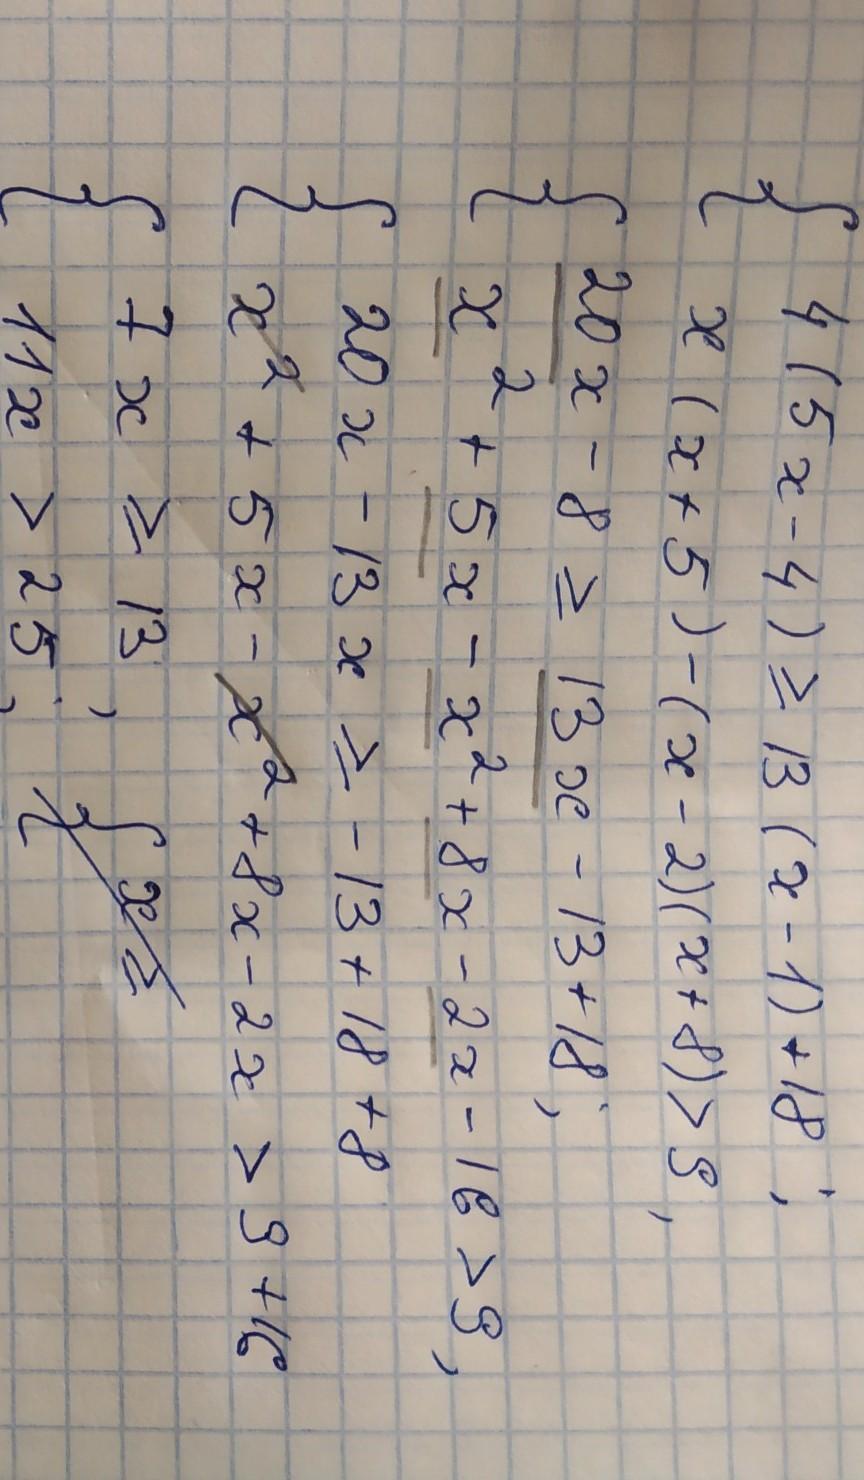 { 4(5x-4) ≥ 13(x-1)+18;
x(x+5)-(x-2)(x+8)>9;
{ 20x-8 ≥ 13x-13+18;
x²+5x-x²+8x-2x-16>9;
{ 20x-13x ≥ -13+18+8
x²+5x-x²+8x-2x > 9+16
{ 7x ≥ 13; { x ≥
11x > 25;